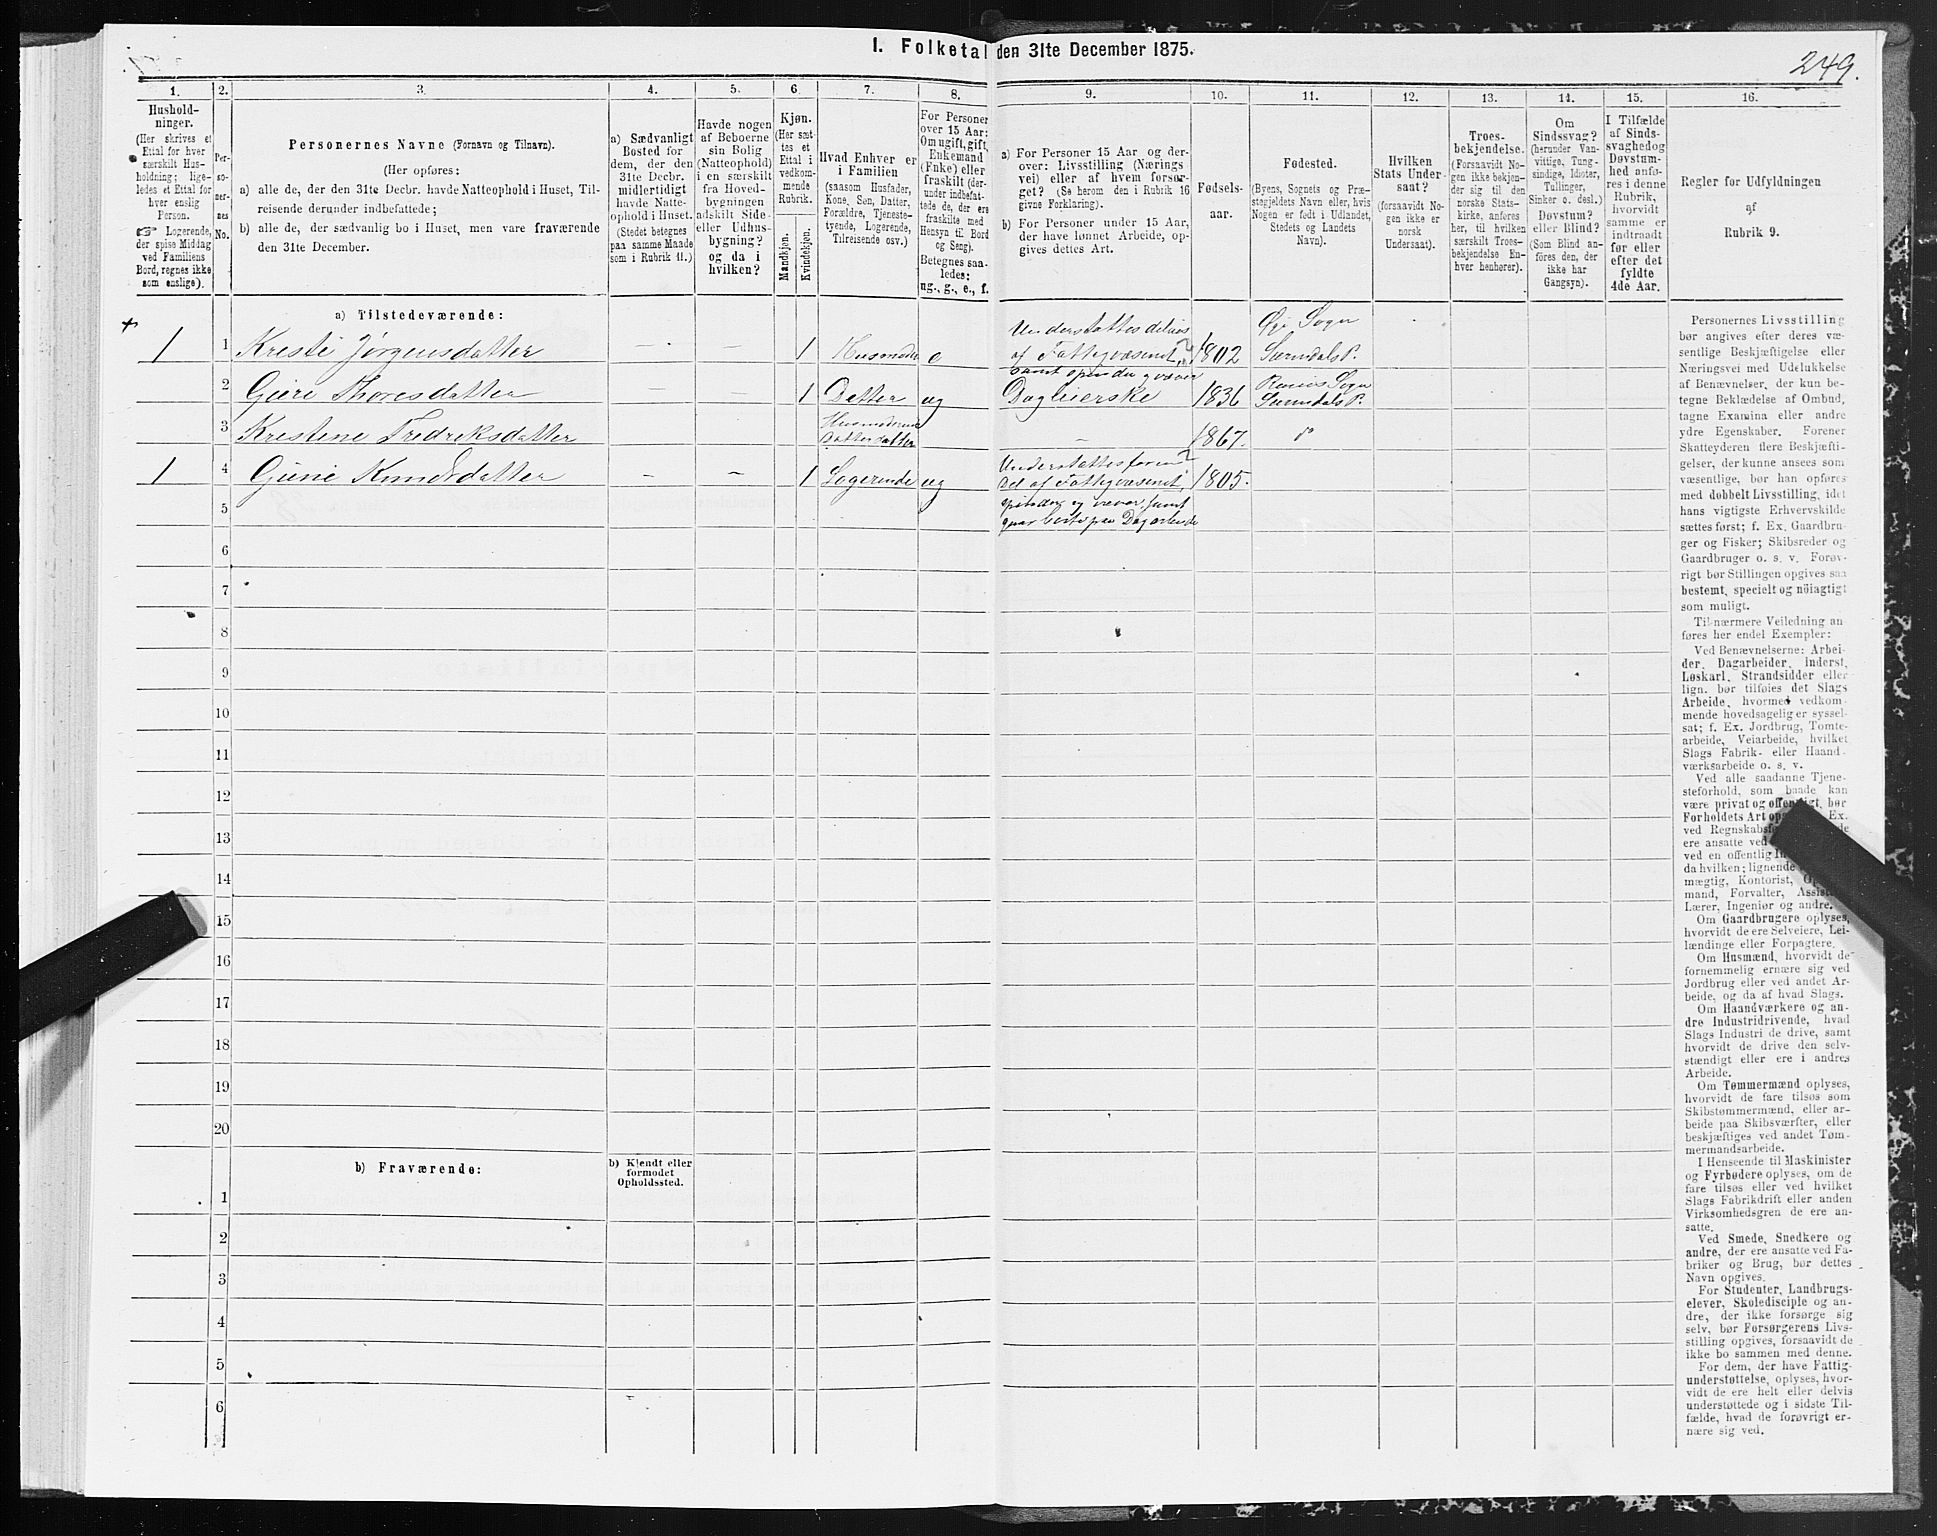 I. Folketal den 31te December 1875.
249.
1.
2.
3.
4.
5.
6.
7.
8.
9.
10.
11.
12.
13.
14.
15.
16.
Hushold-
ninger.
(Her skrives et
Ettal for hver
særskilt Hus-
holdning; lige-
ledes et Ettal for
hver enslig
Person.
☞ Logerende,
der spise Middag
ved Familiens
Bord, regnes ikke
som enslige).
Per-
so-
ner-
nes
No.
Personernes Navne (Fornavn og Tilnavn).
(Her opføres:
a) alle de, der den 31te Decbr. havde Natteophold i Huset, Til-
reisende derunder indbefattede;
b) alle de, der sædvanlig bo i Huset, men vare fraværende
den 31te December.
a) Sædvanligt
Bosted for
dem, der den
31te Decbr.
midlertidigt
havde Natte-
ophold i Huset.
(Stedet betegnes
paa samme Maade
som i Rubrik 11.)
Havde nogen
af Beboerne
sin Bolig
(Natteophold)
i en særskilt
fra Hoved-
bygningen
adskilt Side-
eller Udhus-
bygning?
og da i
hvilken?
Kjøn.
(Her sæt-
tes et
Ettal i
vedkom-
mende
Rubrik.
Mandkjøn.
Kvindekjøn.
Hvad Enhver er
i Familien
(saasom Husfader,
Kone, Søn, Datter,
Forældre, Tjeneste-
tyende, Logerende,
Tilreisende osv.)
For Personer
over 15 Aar:
Om ugift, gift,
Enkemand
(Enke) eller
fraskilt (der-
under indbefat-
tede de, der ere
fraskilte med
Hensyn til Bord
og Seng).
Betegnes saa-
ledes:
ug., g., e., f.
a) For Personer 15 Aar og der-
over: Livsstilling (Nærings
vei) eller af hvem forsør-
get? (Se herom den i Rubrik 16
givne Forklaring).
b) For Personer under 15 Aar,
der have lønnet Arbeide, op-
gives dettes Art.
Fødsels-
aar.
Fødested.
(Byens, Sognets og Præ-
stegjeldets Navn eller, hvis
Nogen er født i Udlandet,
Stedets og Landets
Navn).
Hvilken
Stats Under-
saat?
(forsaavidt No-
gen ikke er
norsk
Undersaat).
Troes-
bekjendelse.
(Forsaavidt No-
gen ikke bekjen-
der sig til den
norske Stats-
kirke, anføres
her, til hvilken
særskilt Troes-
bekjendelse En-
hver henhører).
Om
Sindssvag?
(herunder Van-
vittige, Tung-
sindige, Idioter,
Tullinger,
Sinker o. desl.)
Døvstum?
eller Blind?
(Som Blind an-
føres den, der
ikke har
Gangsyn).
I Tilfælde
af Sinds-
svaghed og
Døvstum-
hed anfø-
res i denne
Rubrik,
hvorvidt
samme er
indtraadt
før eller
efter det
fyldte
4de Aar.
Regler for Udfyldningen
af
Rubrik 9.
a) Tilstedeværende:
1 1 Kresti Jørgensdatter — — 1 Husmoder e Understøttes delvis af Fattigvæsenet, samt spinder og væver 1802 Øie Sogn Surendals P.
2 Gjeri Thoresdatter — — 1 Datter ug Dagleierske 1836 Surendals P.
3 Krestene Fredriksdatter Husmoderens Datterdatter — 1867. d°
1 4 Knudsdatter — — 1 Logerende ug Understøttes for en Del af Fattigvæsenet, spinder og væver, samt 1805.
5
6
7
8
9
10
11
12
13
14
15
16
17
18
19
20
b) Fraværende:
b) Kjendt eller
formodet
Opholdssted.
1
2
3
4
5
6
Personernes Livsstilling
bør angives efter deres væ-
sentlige Beskjæftigelse eller
Næringsvei med Udelukkelse
af Benævnelser, der kun be-
tegne Beklædelse af Ombud,
tagne Examina eller andre
ydre Egenskaber. Forener
Skatteyderen flere Beskjæfti-
gelser, der kunne ansees som
væsentlige, bør han opføres
med dobbelt Livsstilling, idet
hans vigtigste Erhvervskilde
sættes først; f. Ex. Gaardbru-
ger og Fisker; Skibsreder og
Gaardbruger o. s. v. Forøv-
rigt bør Stillingen opgives saa
bestemt, specielt og nöiagtigt
som muligt.
Til nærmere Veiledning an
føres her endel Exempler:
Ved Benævnelserne: Arbei-
der, Dagarbeider, Inderst,
Løskarl, Strandsidder eller
lign. bør tilføies det Slags
Arbeide, hvormed vedkom-
mende hovedsagelig er syssel-
sat; f. Ex. Jordbrug, Tomte-
arbeide, Veiarbeide, hvilket
Slags Fabrik- eller Haand-
værksarbeide o. s. v.
Ved alle saadanne Tjene-
steforhold, som baade kan
være privat og offentligt, bør
Forholdets Art Ex.
ved
ere ansatte ved
ved en offentlig
da hvilken; lignende
mægtig, Kontorist,
mand, Forvalter,
Lærer, Ingeniør og andre.
Om Gaardbrugere oplyses,
hvorvidt de ere Selveiere, Lei-
lændinge eller Forpagtere.
Om Husmænd, hvorvidt de
fornemmelig ernære sig ved
Jordbrug eller ved andet Ar-
beide, og da af hvad Slags.
Om Haandværkere og an-
dre Industridrivende, hvad
Slags Industri de drive, samt
hvorvidt de drive den selv-
stændigt eller ere i andres
Arbeide.
Om Tømmermænd oplyses,
hvorvidt de fare tilsøs som
Skibstømmermænd, eller ar-
beide paa Skibsværfter, eller
beskjæftiges ved andet Tøm-
mermandsarbeide.
I Henseende til Maskinister
og Fyrbødere oplyses, om de
fare tilsøs eller ved hvilket
Slags Fabrikdrift eller anden
Virksomhedsgren de ere an-
satte.
Ved Smede, Snedkere og
andre, der ere ansatte ved Fa-
briker og Brug, bør dettes
Navn opgives.
For Studenter, Landbrugs-
elever, Skoledisciple og an-
dre, der ikke forsørge sig
selv, bør Forsørgerens Livs-
stilling opgives, forsaavidt de
ikke bo sammen med denne.
For dem, der have Fattig-
understøttelse, oplyses, hvor-
vidt de ere helt eller delvis
understøttede og i sidste Til-
fælde, hvad de forøvrigt er-
nære sig ved.